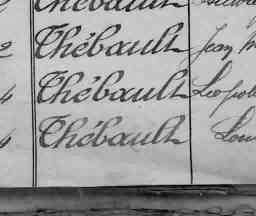 Thébault
2 Thébault Jean M
4 Thébault Léopold
4 Thébault Lou